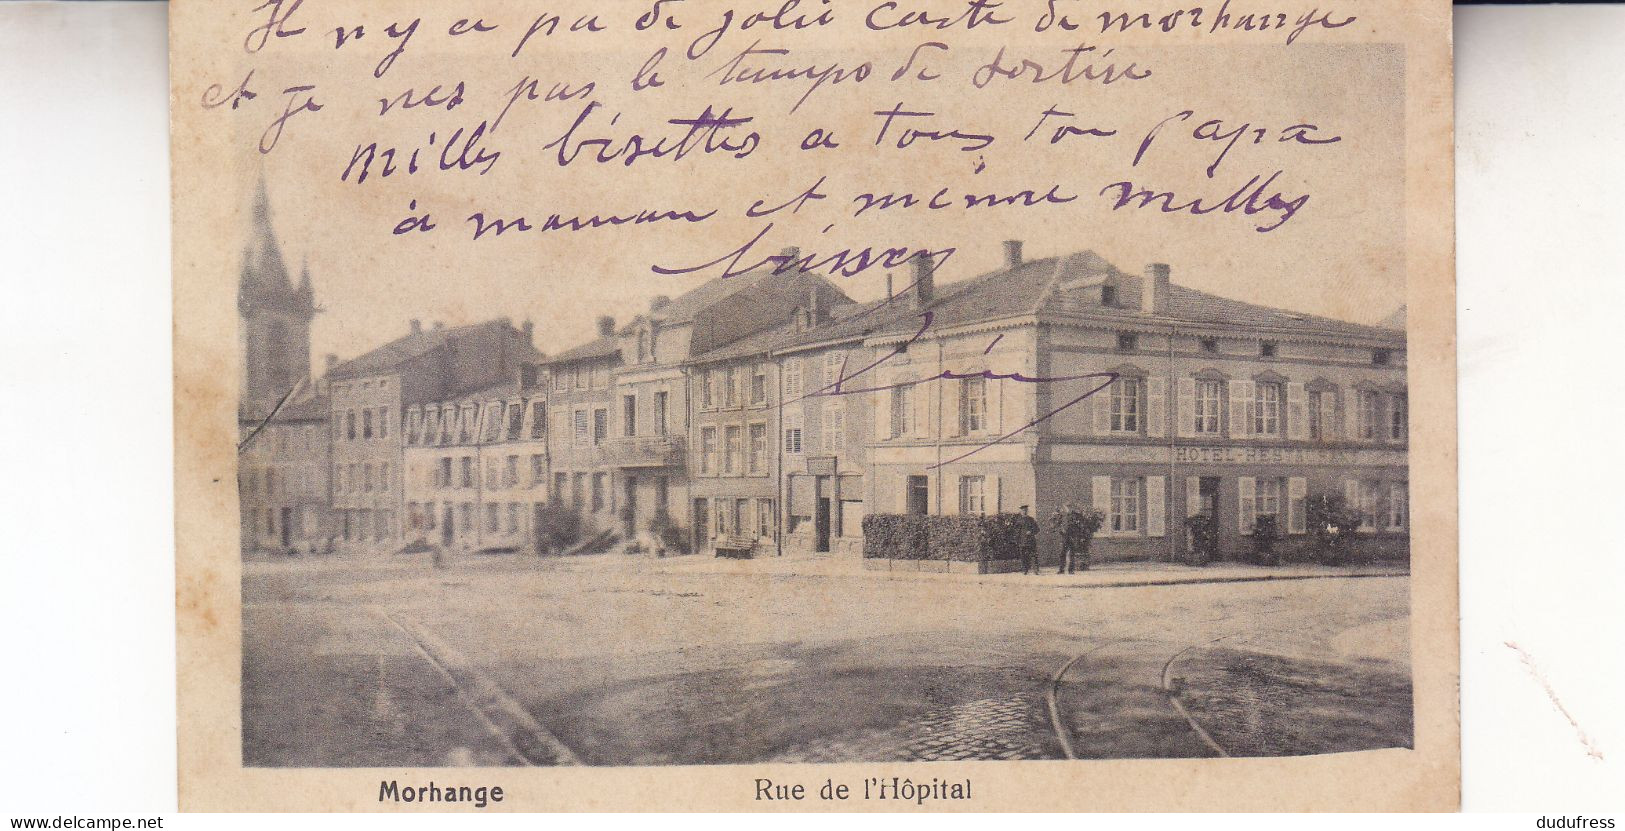 Il n y a pa de jolie carte de morhange
et je nez pas le temps de sortire
Milles bisettes a tous ton papa
a maman et mémére milles
HOTEL-RESTAURANT
Morhange
Rue de l'Hôpital
www.delcampe.net
dudufress